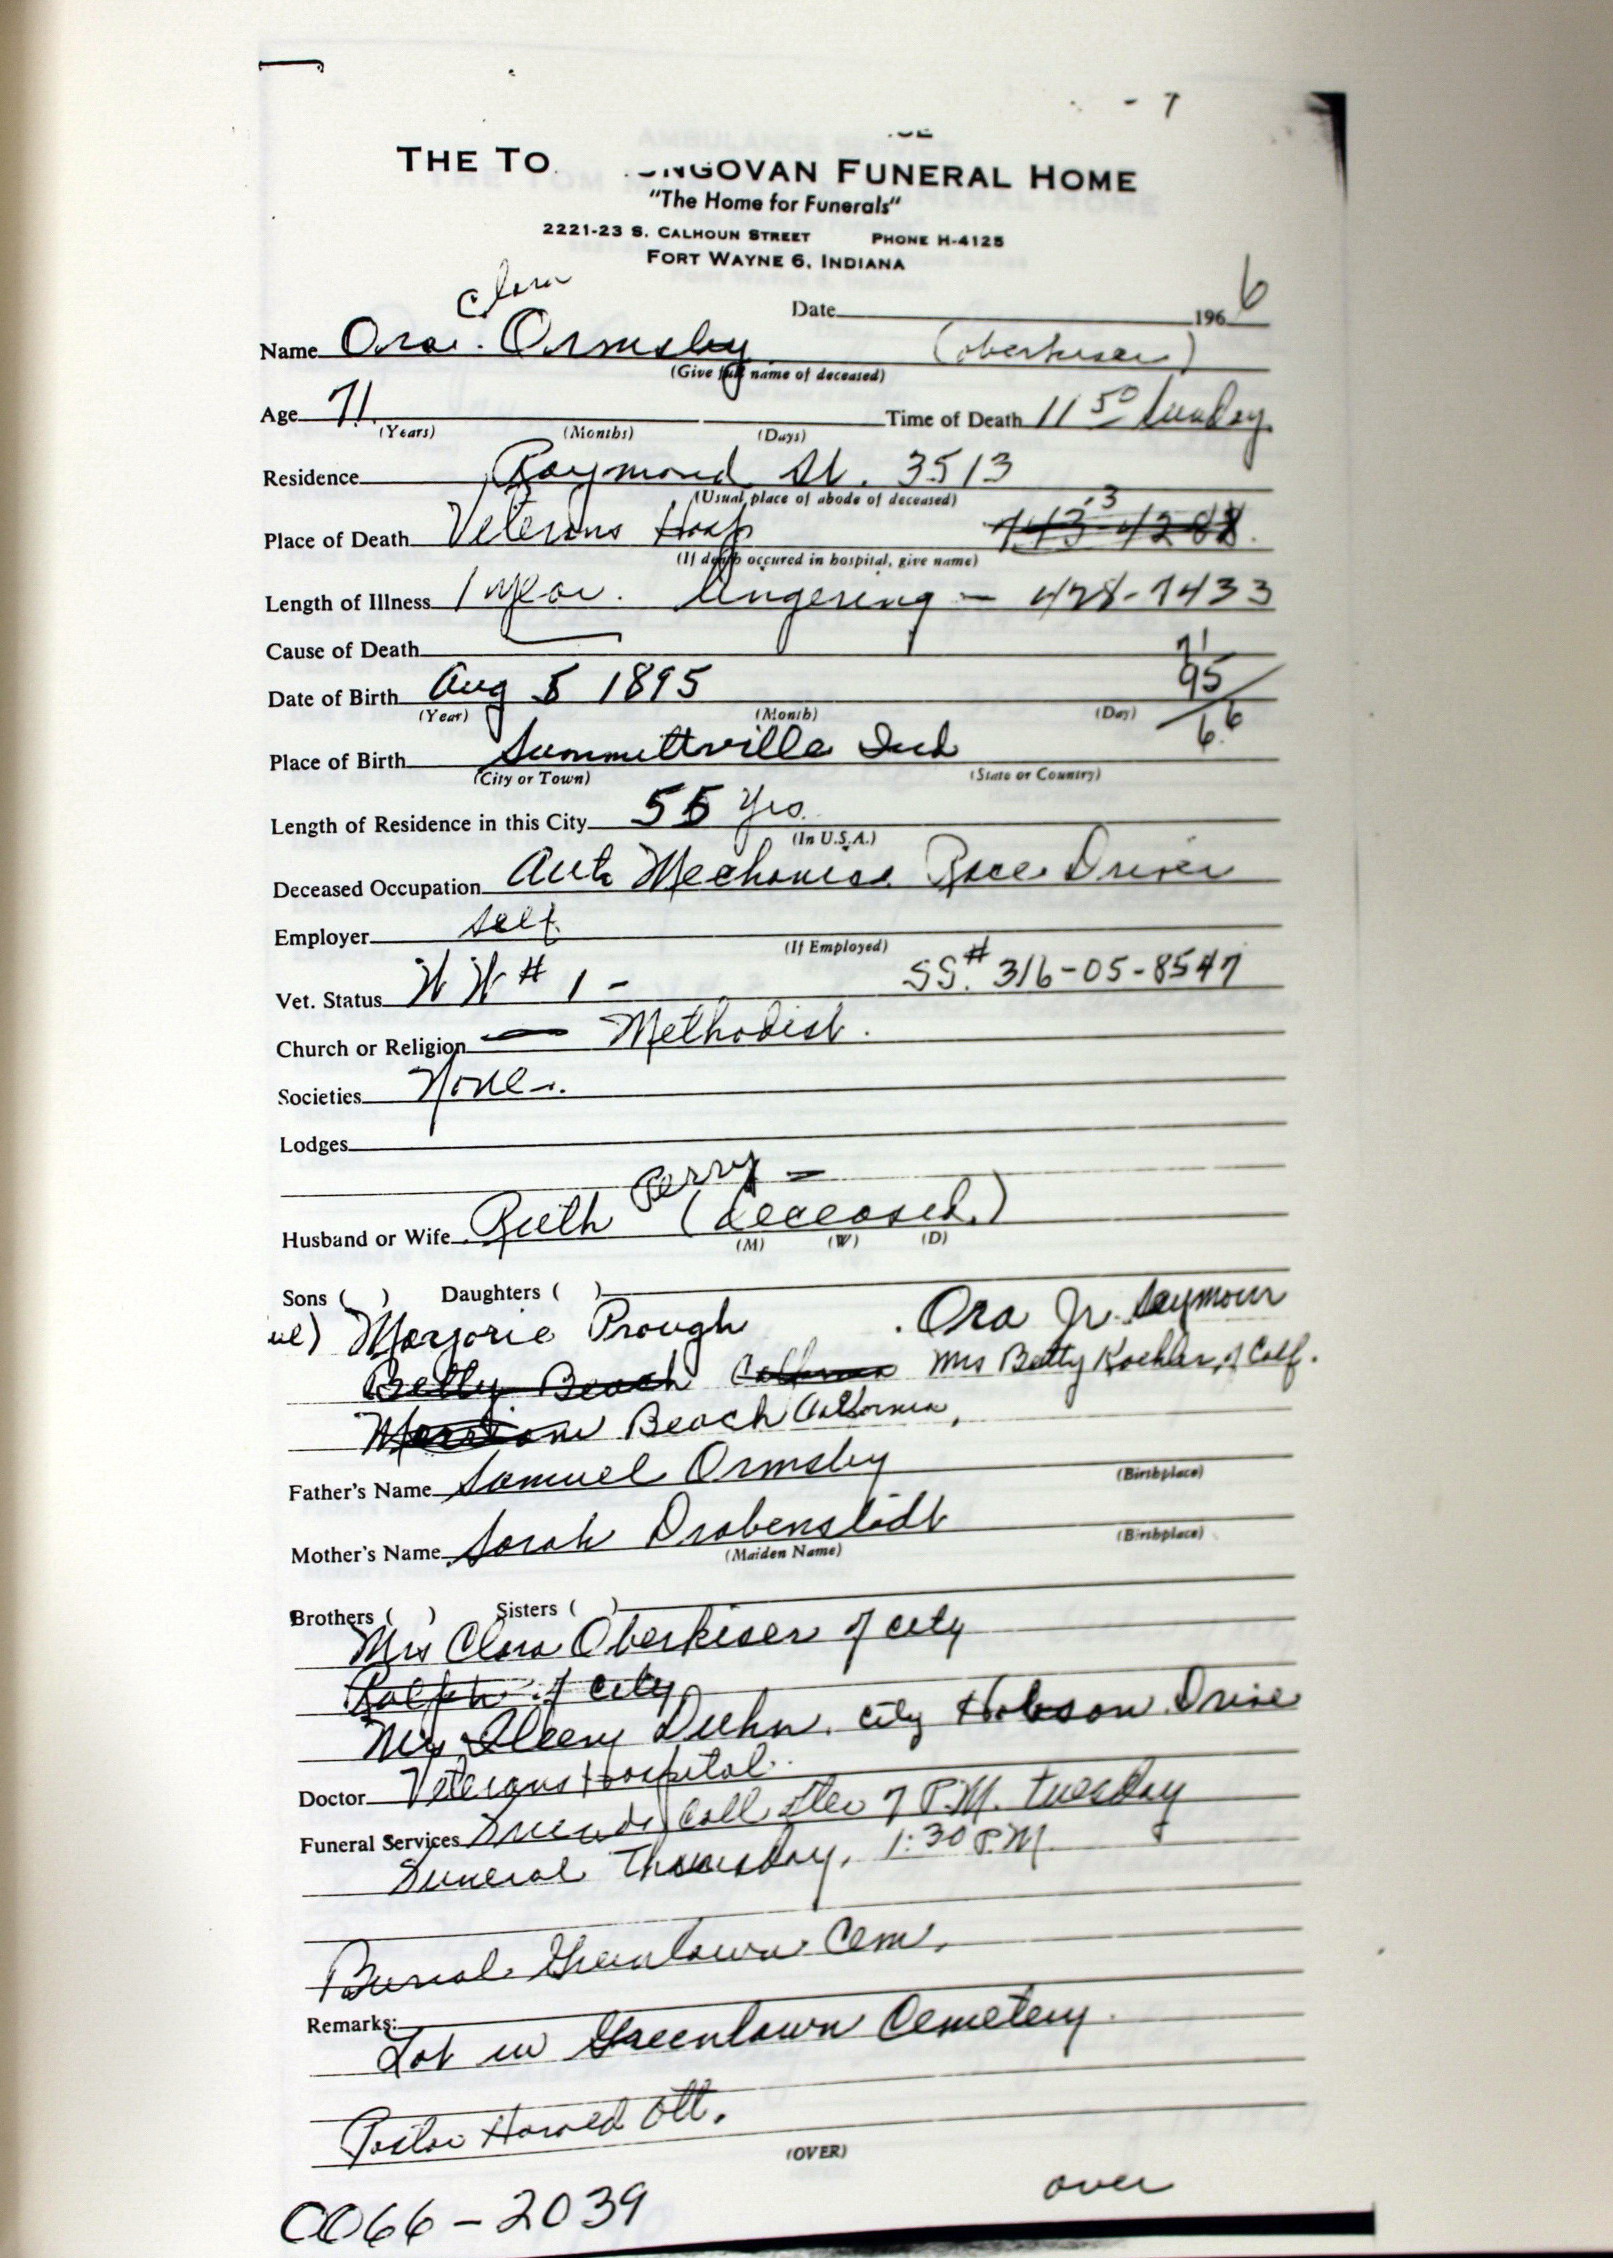 - 7
THE TO NGOVAN FUNERAL HOME
"The Home for Funerals"
2221-23 S. CALHOUN STREET PHONE H-4125
FORT WAYNE 6, INDIANA
Clara
Date 196 6
Name Ora Ormsby (Oberkiser)
(Give full name of deceased)
Age 71 Time of Death 11 50 Sunday
(Years) (Months) (Days)
Residence Raymond St. 3513
(Usual place of abode of deceased)
Place of Death Veterans Hosp
(If death occured in hospital, give name)
Length of Illness 1 year. lingering - 478-7433
Cause of Death 71
Date of Birth Aug 5 1895 95
(Year) (Month) (Day) 66
Place of Birth Summittville Ind
(City or Town) (State or Country)
Length of Residence in this City 55 Yrs.
(In U.S.A.)
Deceased Occupation Auto Mechanic Race Driver
Employer self
(If Employed)
Vet. Status W W # 1 - SS.# 316-05-8547
Church or Religion Methodist.
Societies None.
Lodges
Perry -
Husband or Wife Ruth (deceased.)
(M) (W) (D)
Sons ( ) Daughters ( )
Marjorie Prough Ora Jr. Seymour
Betty Beach California Mrs Betty Koehler, of Calf.
Beach California,
Father's Name Samuel Ormsby
(Birthplace)
Mother's Name Sarah Drabenstadt
(Maiden Name) (Birthplace)
Brothers ( ) Sisters ( )
Mrs Clara Oberkiser of city
Ralph of City
Mrs Duehn. City Hobson Drive
Doctor Veterans Hospital.
Funeral Services Friends call after 7 P.M. Tuesday
Funeral Thursday, 1:30 P.M.
Burial Greenlawn Cem.
Remarks:
Lot in Greenlawn Cemetery.
Pastor Harold Ott.
(OVER)
over
0066-2039